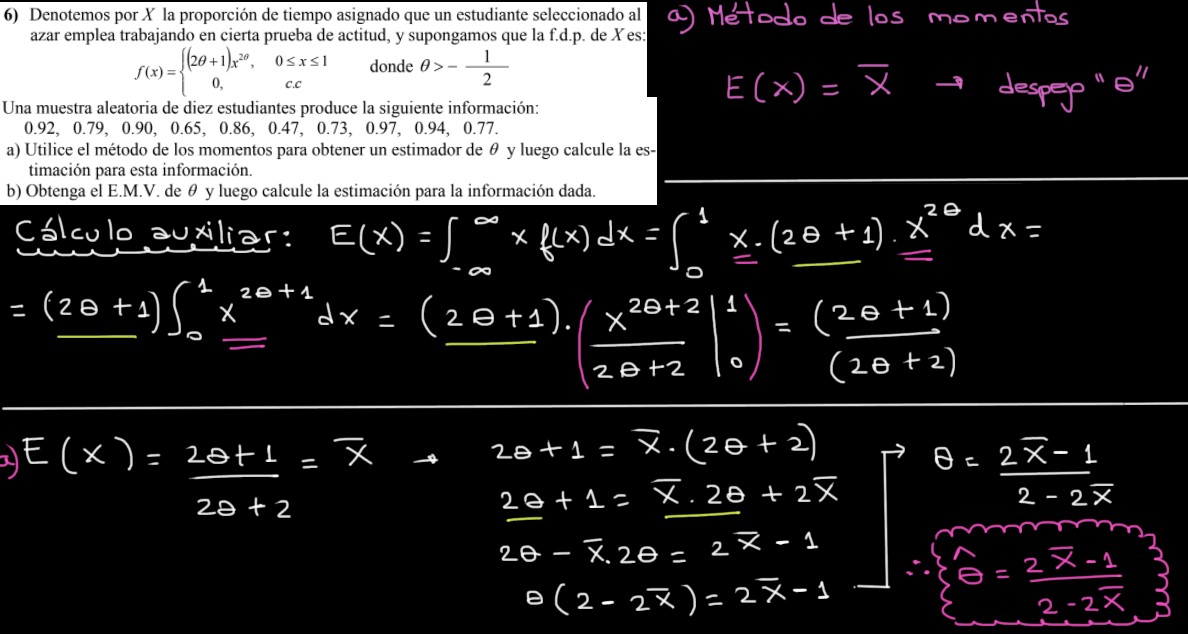 6) Denotemos por X la proporción de tiempo asignado que un estudiante seleccionado al
azar emplea trabajando en cierta prueba de actitud, y supongamos que la f.d.p. de X es:
f(x) = {(2θ+1)x^{2θ}, 0 ≤ x ≤ 1
0, c.c
donde θ > - 1/2
Una muestra aleatoria de diez estudiantes produce la siguiente información:
0.92, 0.79, 0.90, 0.65, 0.86, 0.47, 0.73, 0.97, 0.94, 0.77.
a) Utilice el método de los momentos para obtener un estimador de θ y luego calcule la es-
timación para esta información.
b) Obtenga el E.M.V. de θ y luego calcule la estimación para la información dada.
a) Método de los momentos
E(x) = X̅ → despejo "θ"
Cálculo auxiliar: E(X) = ∫_{-∞}^{∞} x f(x) dx = ∫_0^1 x.(2θ+1).x^{2θ} dx =
= (2θ+1) ∫_0^1 x^{2θ+1} dx = (2θ+1).(x^{2θ+2}/2θ+2 |_0^1) = (2θ+1)/(2θ+2)
a) E(x) = 2θ+1/2θ+2 = X̅ →
2θ+1 = X̅.(2θ+2)
2θ+1 = X̅.2θ + 2X̅
2θ - X̅.2θ = 2X̅ - 1
θ(2-2X̅) = 2X̅-1
θ = 2X̅-1/2-2X̅
∴ θ̂ = 2X̅-1/2-2X̅